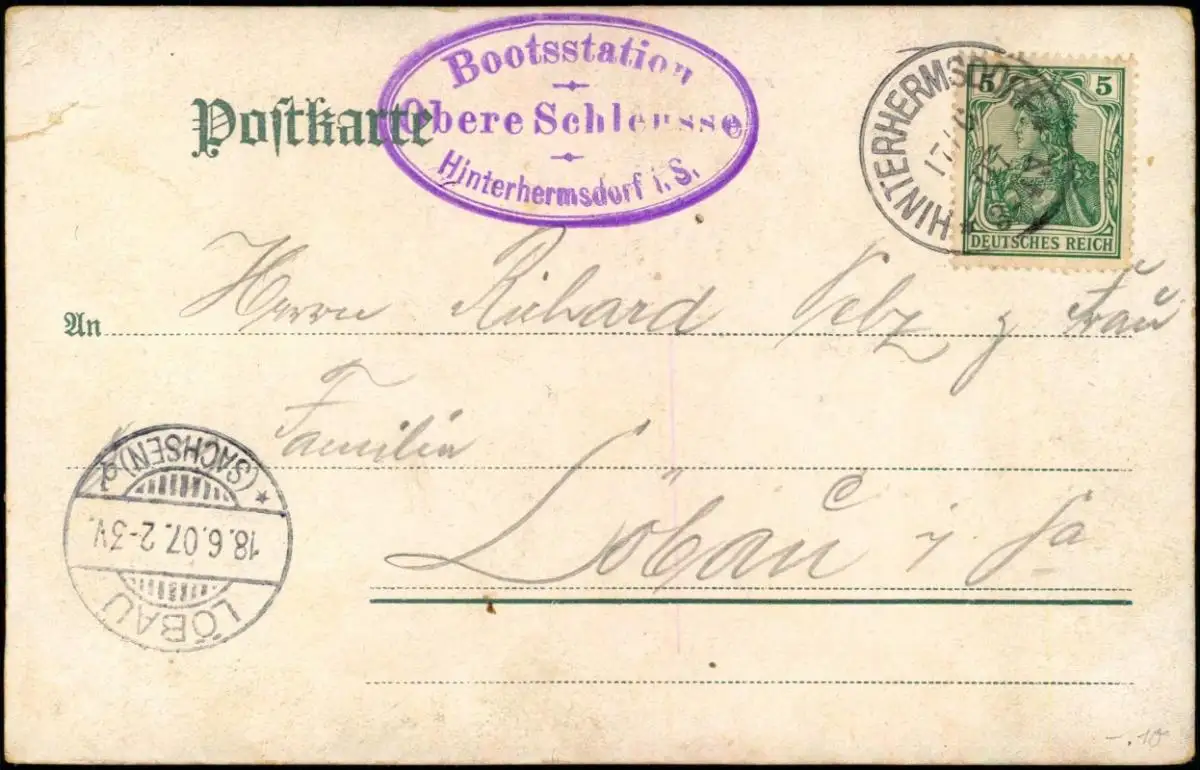 Bootsstation
Obere Schleusse
Hinterhermsdorf i. S.
Postkarte
HINTERHERMSDORF
5 5
DEUTSCHES REICH
An Herrn Richard Velz Frau
Familie
Löbau i Sa
(SACHSEN)
18.6.07. 2-3V.
LÖBAU
-.10